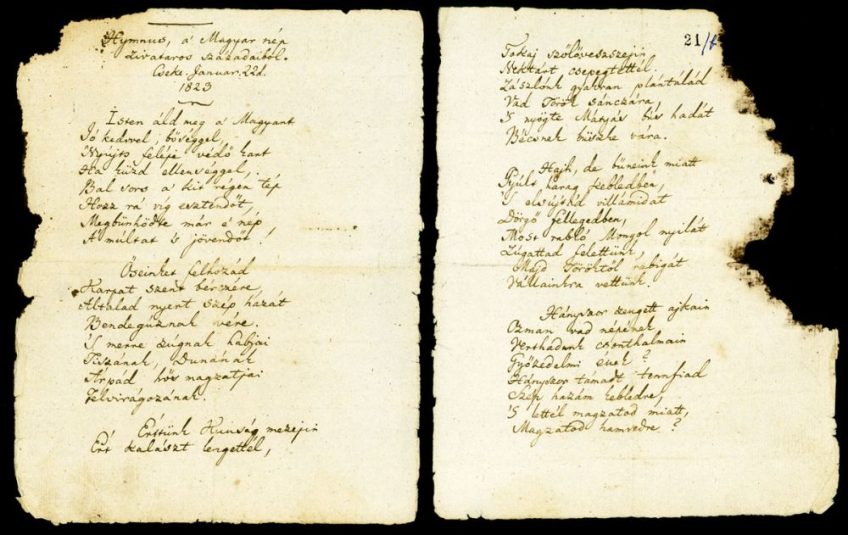 Hymnus, a' Magyar nép
zivataros századaiból.
Cseke Januar. 22d.
1823
Isten áld meg a' Magyart
Jó kedvvel, bőséggel,
Nyújts feléje védő kart
Ha küzd ellenséggel,
Bal sors a' kit régen tép
Hozz rá víg esztendőt,
Megbűnhődte már e' nép
A' múltat 's jövendőt!
Őseinket felhozád
Kárpát szent bérczére,
Általad nyert szép hazát
Bendegúznak vére.
'S merre zúgnak habjai
Tiszának, Dunának
Árpád hős magzatjai
Felvirágozának.
Értünk Kunság mezejin
Ért kalászt lengettél,
21/
Tokaj szőlővesszejin
Nektárt csepegtettél.
Zászlónk gyakran plántálád
Vad Török sánczára,
'S nyögte Mátyás bús hadát
Bécsnek büszke vára.
Hajh, de bűneink miatt
Gyúlt harag kebledben,
'S elsújtád villámidat
Dörgő fellegedben,
Most rabló Mongol nyilát
Zúgattad felettünk,
Majd Töröktől rabigát
Vállainkra vettünk.
Hányszor zengett ajkain
Ozman vad népének
Vert hadunk csonthalmain
Győzedelmi ének?
Hányszor támadt tennfiad
Szép hazám kebledre,
'S lettél magzatod miatt,
Magzatod hamvvedre?